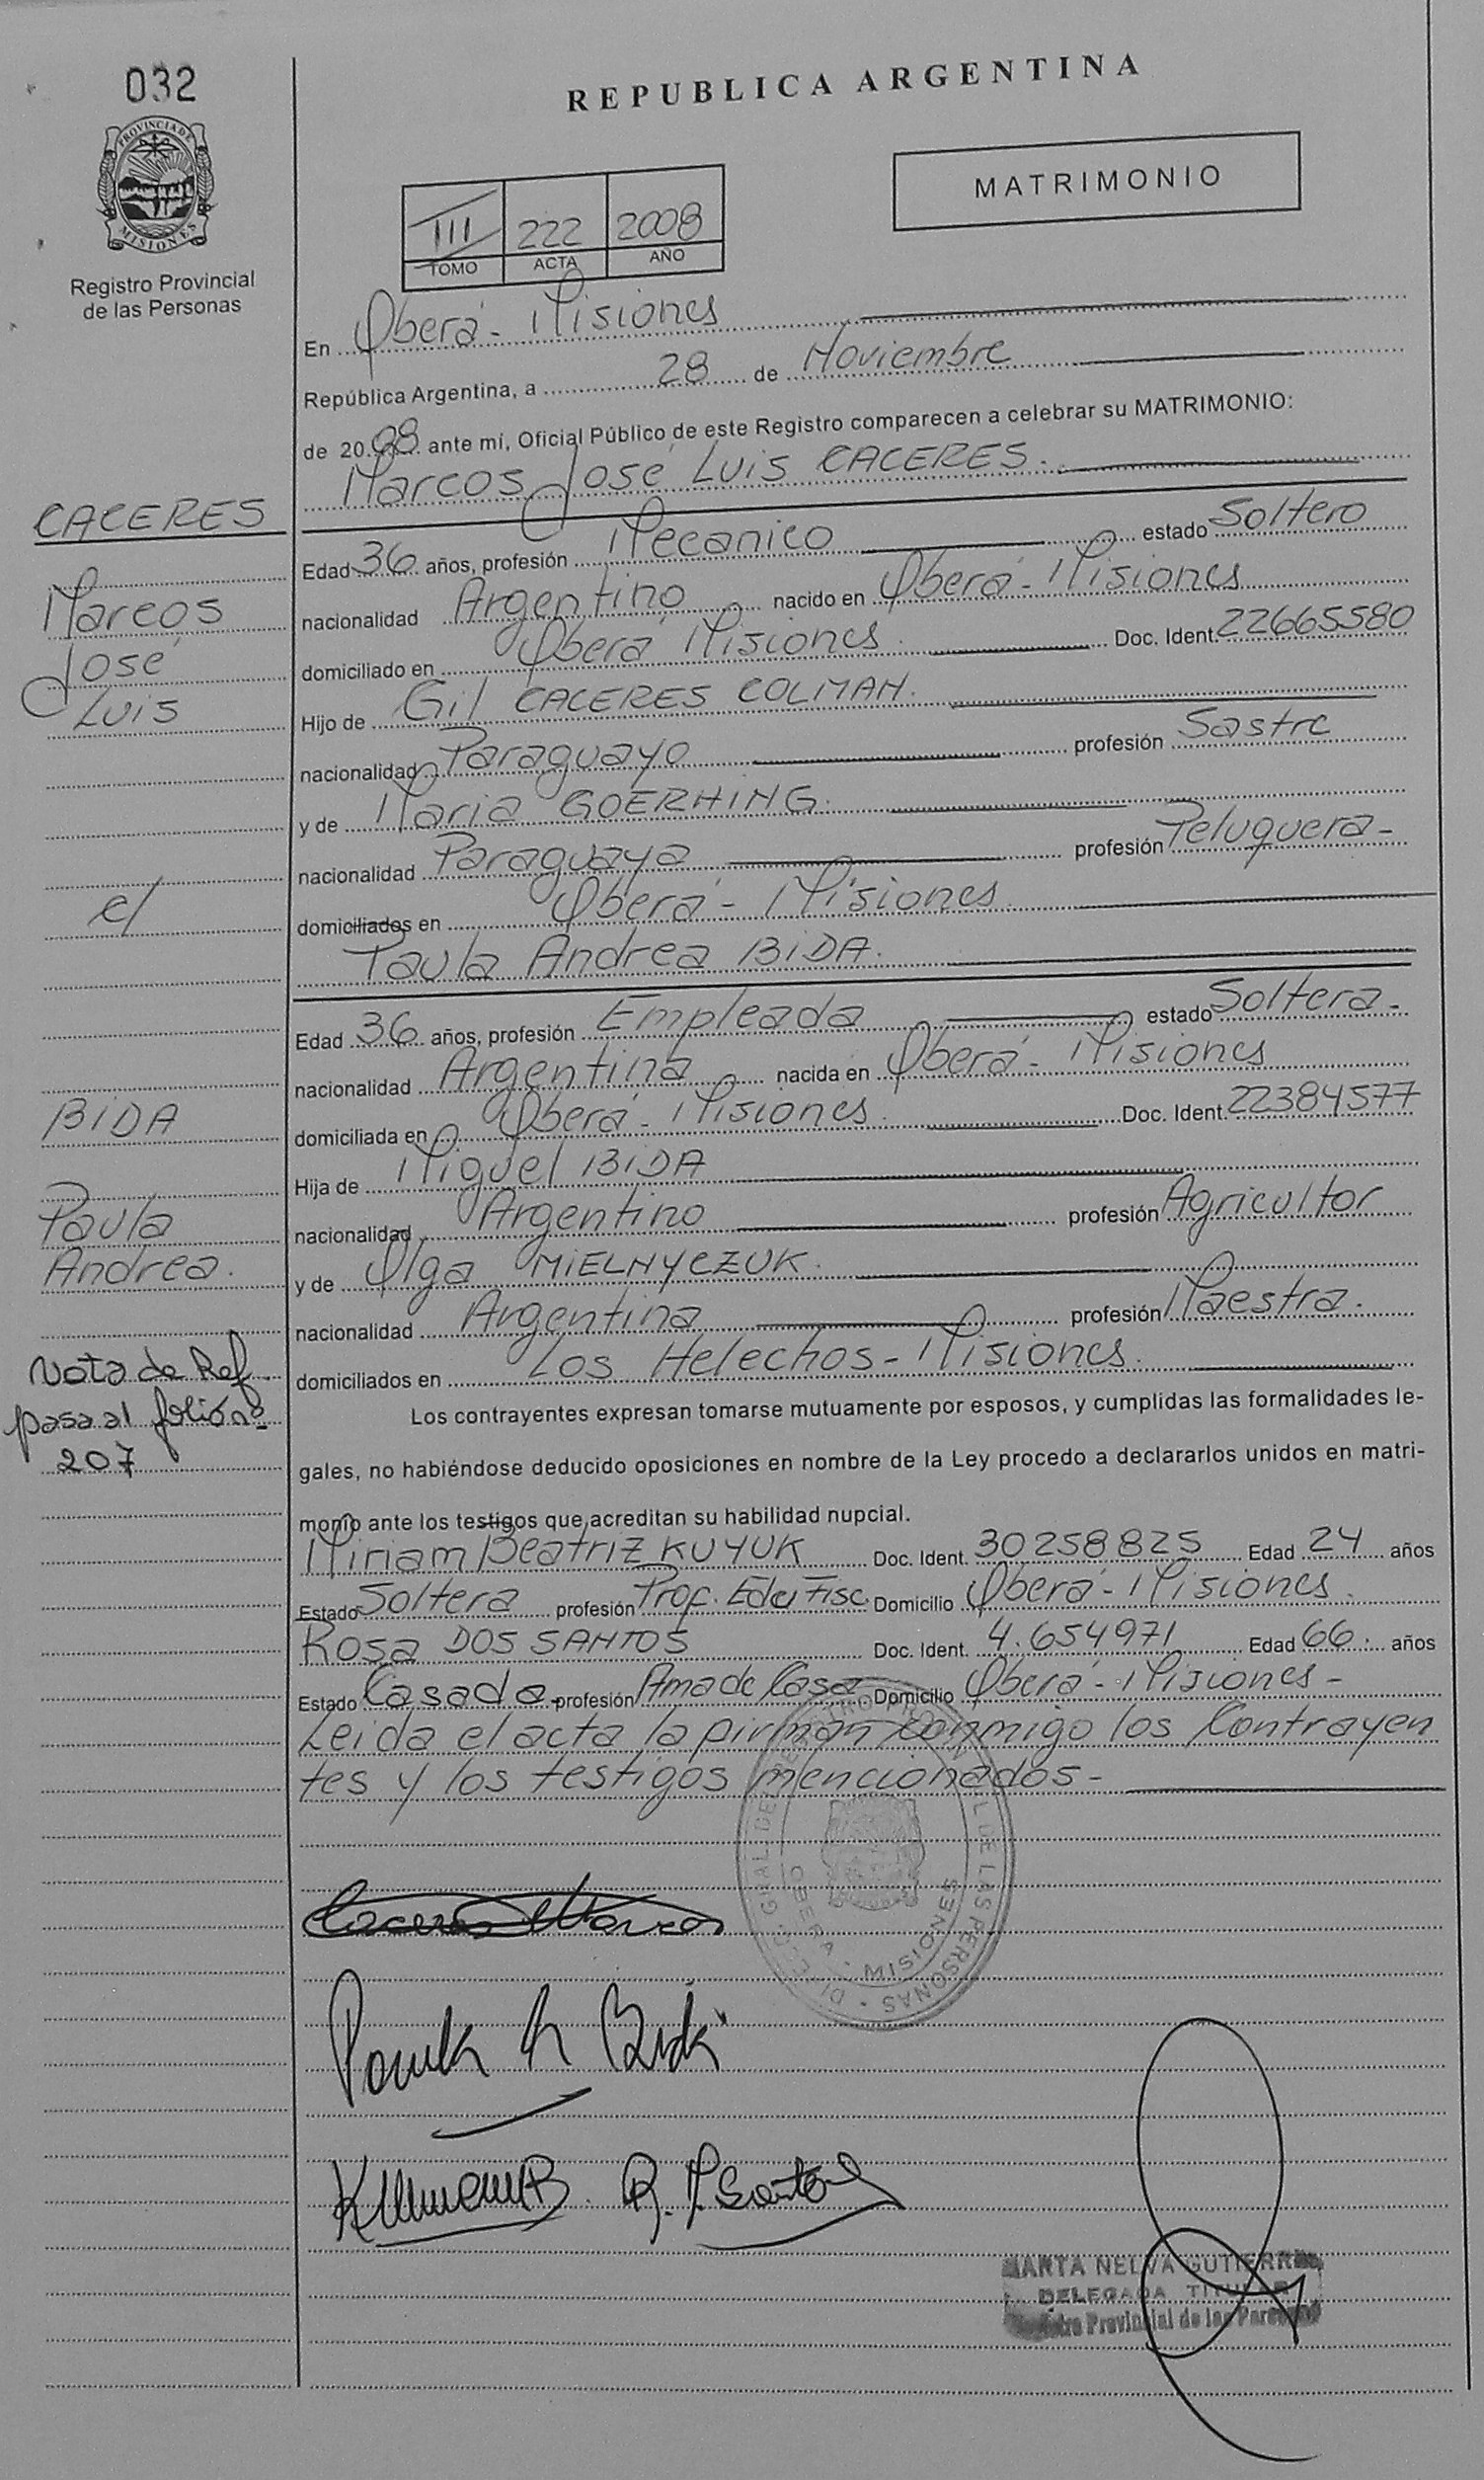 032
PROVINCIA DE
MISIONES
Registro Provincial
de las Personas
REPUBLICA ARGENTINA
MATRIMONIO
III 222 2008
TOMO ACTA AÑO
En Oberá - Misiones
República Argentina, a 28 de Noviembre
de 2008 ante mí, Oficial Público de este Registro comparecen a celebrar su MATRIMONIO:
Marcos José Luis CACERES.
CACERES
Marcos
José
Luis
Edad 36 años, profesión Mecanico estado Soltero
nacionalidad Argentino nacido en Oberá - Misiones
domiciliado en Oberá Misiones. Doc. Ident. 22665580
Hijo de Gil CACERES COLMAN.
nacionalidad Paraguayo profesión Sastre
y de Maria GOERHING.
nacionalidad Paraguaya profesión Peluquera -
c/
domiciliados en Oberá - Misiones.
Paula Andrea BIDA.
Edad 36 años, profesión Empleada estado Soltera -
nacionalidad Argentina nacida en Oberá - Misiones
BIDA
domiciliada en Oberá - Misiones. Doc. Ident. 22384577
Hija de Miguel BIDA
Paula
Andrea.
nacionalidad Argentino profesión Agricultor
y de Olga MIELNYCZUK.
nacionalidad Argentina profesión Maestra.
domiciliados en Los Helechos - Misiones.
Nota de Ref.
pasa al folio nº
207
Los contrayentes expresan tomarse mutuamente por esposos, y cumplidas las formalidades le-
gales, no habiéndose deducido oposiciones en nombre de la Ley procedo a declararlos unidos en matri-
monio ante los testigos que acreditan su habilidad nupcial.
Miriam Beatriz KUYUK Doc. Ident. 30258825 Edad 24 años
Estado Soltera profesión Prof. Edu Fisc. Domicilio Oberá - Misiones.
Rosa DOS SANTOS Doc. Ident. 4.654971 Edad 66. años
Estado Casada profesión Ama de Casa Domicilio Oberá - Misiones -
Leida el acta la firman conmigo los Contrayen
tes y los testigos mencionados -
DIRECC. GRAL. DE REGISTRO PROVINCIAL DE LAS PERSONAS
OBERA - MISIONES
Caceres Marcos
Paula A Bida
R. D Santos
MARTA NELVA GUTIERREZ
DELEGADA TITULAR
Registro Provincial de las Personas